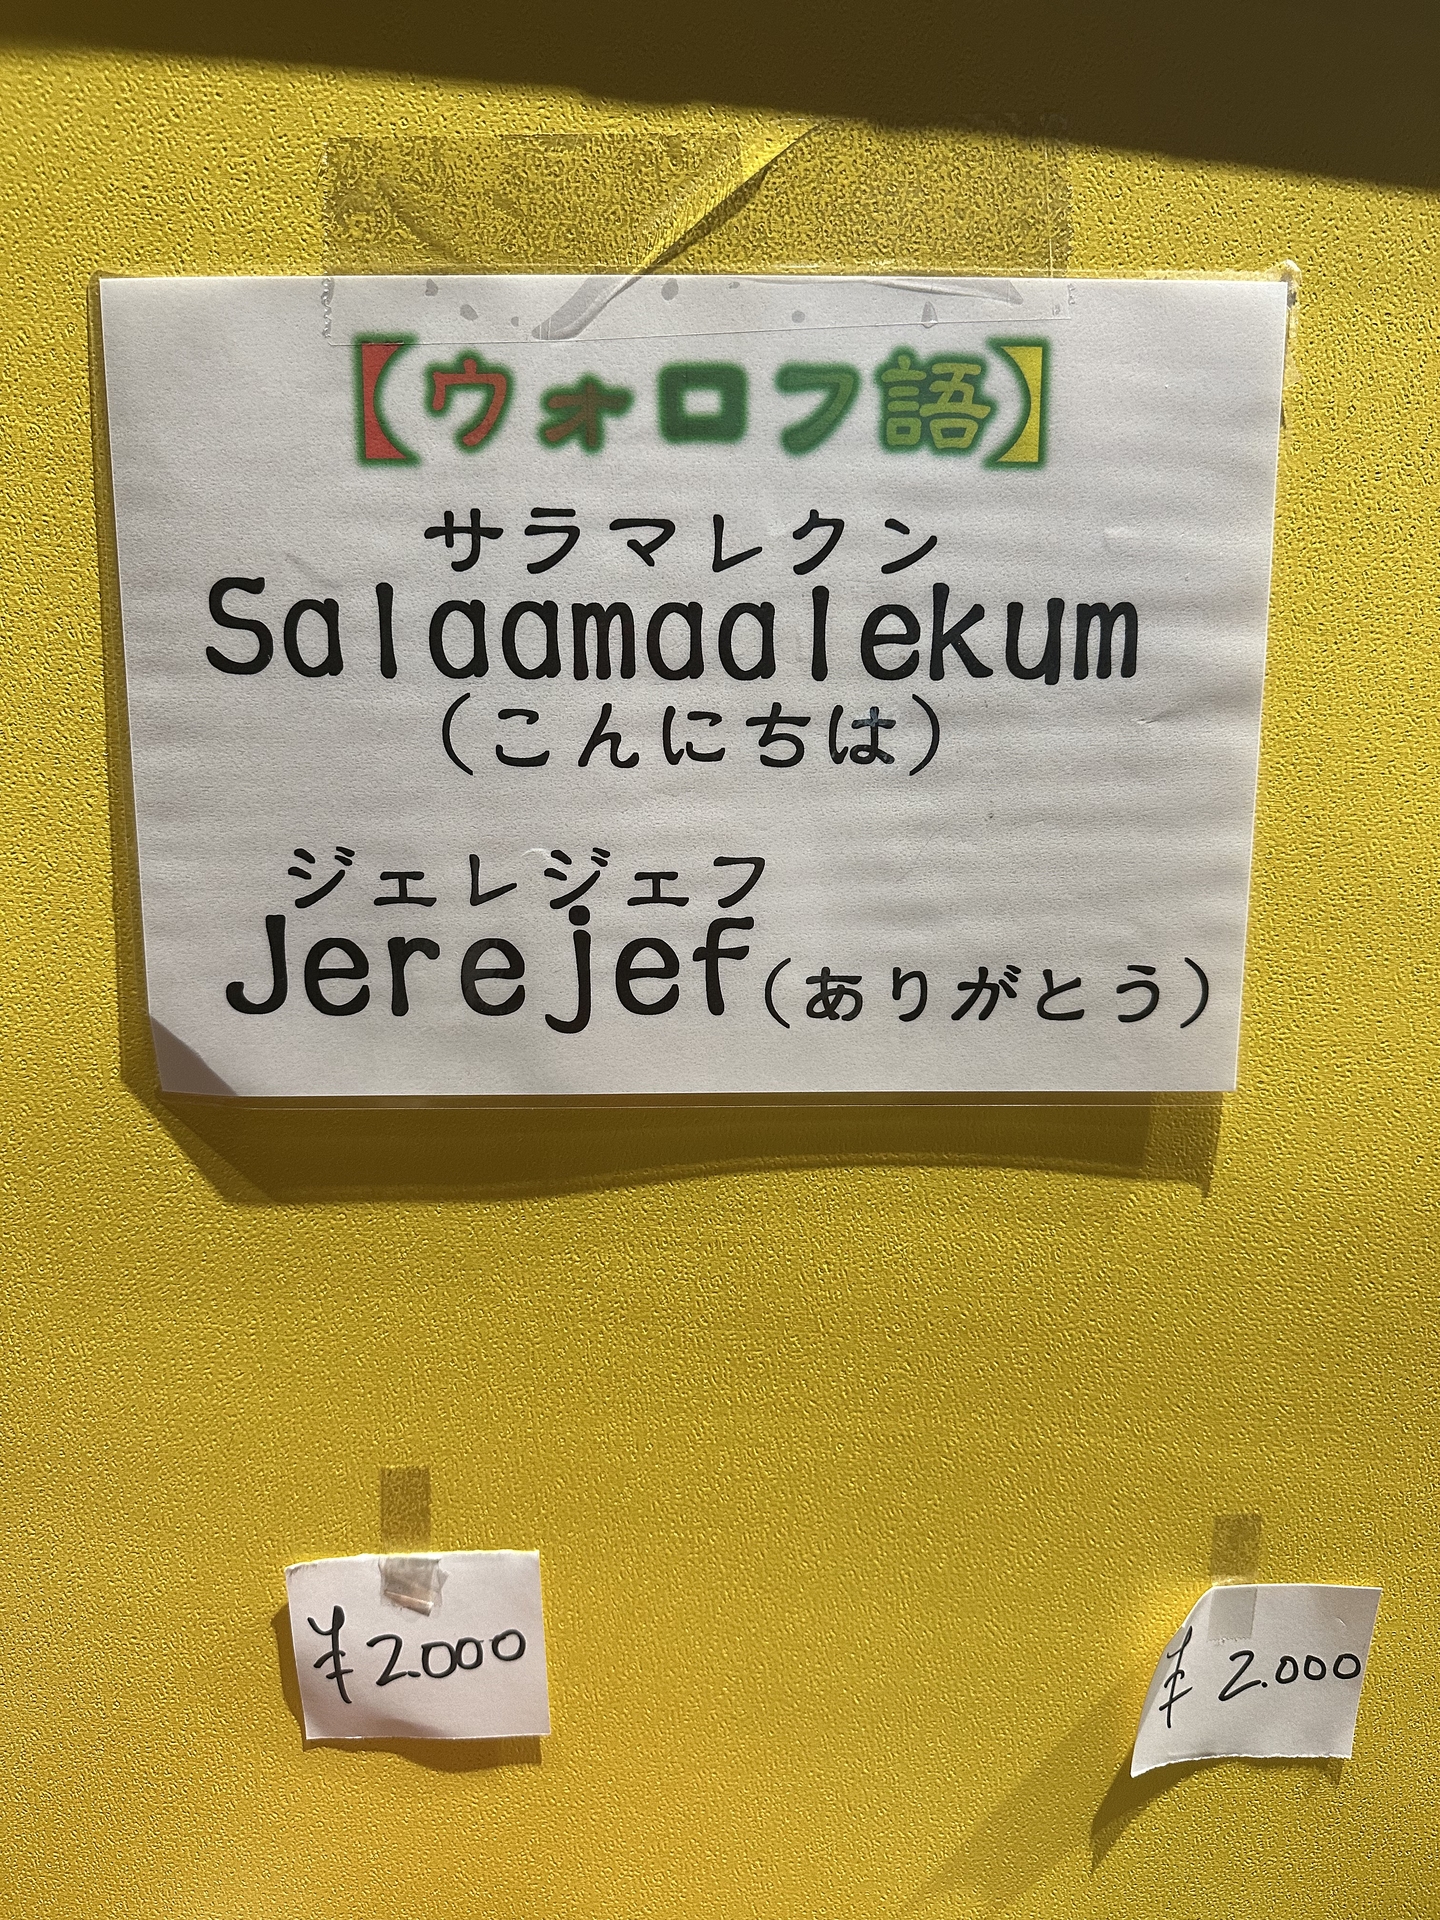 【ウォロフ語】
サラマレクン
Salaamaalekum
（こんにちは）
ジェレジェフ
Jerejef（ありがとう）
¥2.000
¥2.000